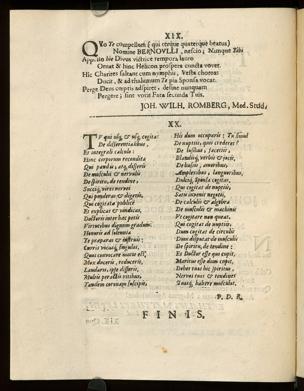 XIX.
QUo Te compellem (qui terque quaterque beatus)
Nomine BERNOVLLI, nescio; Nunque Tibi
hic Divus victrice tempora lauro
Ornat & hinc Helicon prospera cuncta vovet.
Hic Charites saltant cum nymphis, Vesta choreas
Ducit, & ad thalamum Te pia Sponsa vocat.
Perge Deus cœptis adspiret, desine nunquam
Pergere; sint votis Fata secunda Tuis.
JOH. WILH. ROMBERG, Med. Stud.
XX.
TV qui usq; & usq; cogitas
De differentialibus,
Et integrali calculo:
Hinc corporum recondita
Qui pandis, atq; disseris
De musculis & nervulis
De spiritu, de tendine,
Sociisq; vires nervi
Qui ponderas & digeris,
Qui cogitata publicè
Et explicas & vindicas,
Doctoris inter hac petis
Virtutibus dignum gradum:
Honoris ad solennia
Te praeparas & instruis;
Curris vicissq; singulas,
Quis convocare mavis est;
Mox doceris, reduceris,
Laudaris, ipse disseris,
Multis peractis ritibus,
Tandem coronam suscipis,
His dum occuparis: Tu simul
De nuptiis, quis crederet?
De lusibus, facetiis,
Blanditiis, verbis & jocis,
De basiis, amoribus,
Amplexibus, languoribus,
Dulciq; Sponsa cogitas,
Qui cogitas de nuptiis,
Satis invenit negotii,
De calculis & algebra
De musculis & machinis
Ut cogitare non queat.
Qui cogitas de nuptiis,
Dum cogitas de circulis
Dum disputas de musculis
De spiritu, de tendine;
Et Doctor esse qui cupit,
Maritus esse dum cupit,
Debet tuus hic spiritus,
Nervus tuus & tendines
Tuusq; habere musculus.
P. D. R.
FINIS.